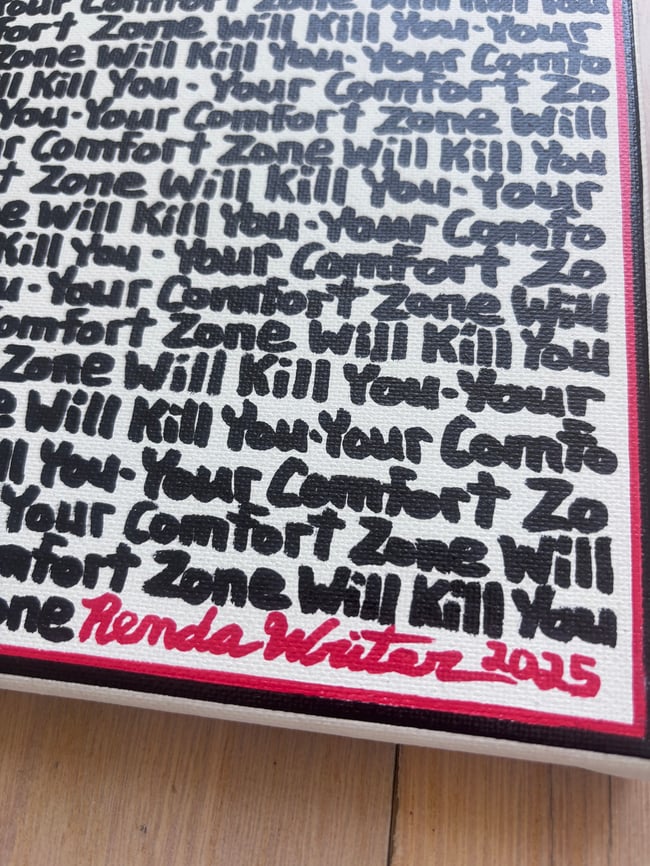 Your Comfort Zone Will Kill You
fort Zone Will Kill You-Your
Zone Will Kill You-Your Comfo
ll Kill You - Your Comfort Zo
You-Your Comfort Zone Will
r Comfort Zone Will Kill You
t Zone Will Kill You-Your
e Will Kill You-Your Comfo
Kill You - Your Comfort Zo
u-Your Comfort Zone Will
omfort Zone Will Kill You
Zone Will Kill You-Your
e Will Kill You-Your Comfo
ll You-Your Comfort Zo
Your Comfort Zone Will
mfort Zone Will Kill You
one Renda Writer 2025